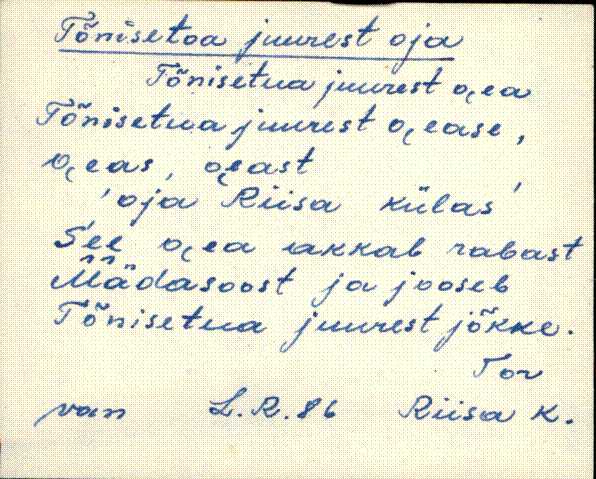 Tõnisetoa juurest oja
Tõnisetua juurest o̯ea
Tõnisetua juurest o̯ease,
o̯eas, o̯east
'oja Riisa külas'
See o̯ea akkab rabast
Mädasoost ja jooseb
Tõnisetua juurest jõkke.
Tor
van L.R.86 Riisa k.